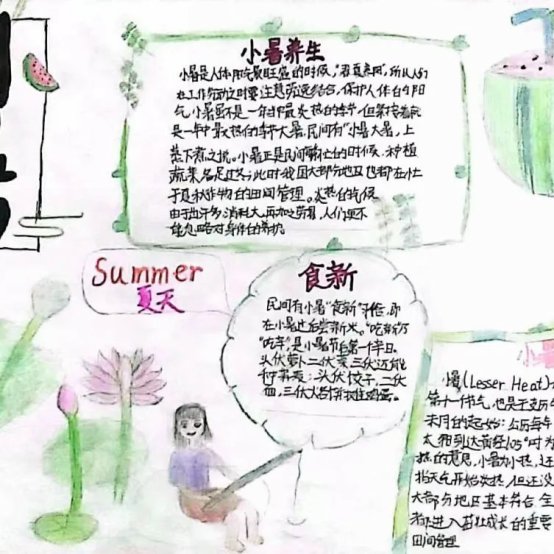 小暑养生
小暑是人体阳气最旺盛的时候，"春夏养阳"，所以人们
在工作劳动之时要注意劳逸结合，保护人体的阳
气，小暑虽不是一年中最炎热的季节，但紧接着就
是一年中最热的季节大暑，民间有"小暑大暑，上
蒸下煮之说。小暑正是民间繁忙的时候，种植
蔬菜
此时我国大部分地区也都在忙
于夏秋作物的田间管理。炎热的气候
由于出汗多，消耗大，再加之劳累，人们更不
能忽略对身体的养护
Summer
夏天
食新
民间有小暑"食新"习俗，即
在小暑过后尝新米。
"吃辛"是小暑节后第一个辛日。
头伏萝卜二伏菜，三伏
种荞麦；头伏饺子，二伏
面，三伏大
小
小暑(Lesser Heat)
第十一个节气，也是干支历
未月的起始；公历每年
太阳到达黄经105°时为
热的意思，小暑为小热，还
指天气开始炎热，但还没
大部分地区基本符合，全
都进入茁壮成长的重要
田间管理